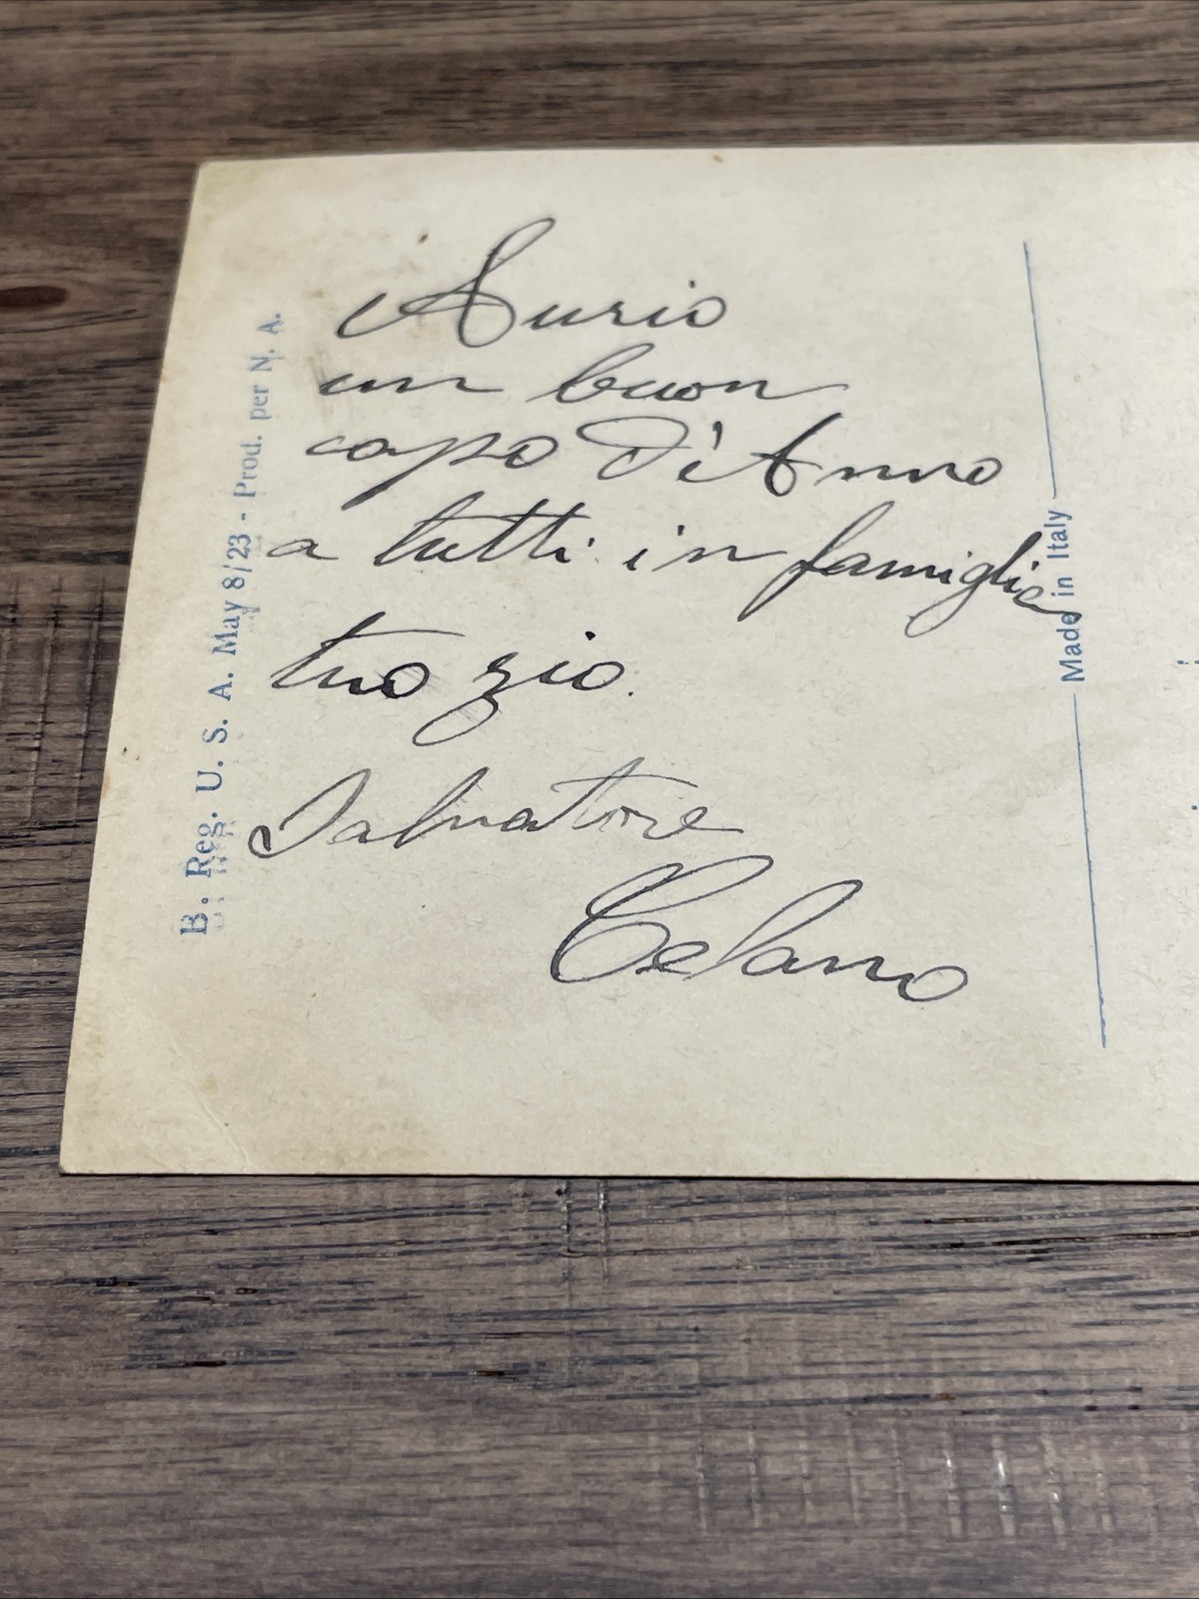 Aurio
un buon
capo D'Anno
a tutti in famiglia
tuo zio.
Salvatore
Celano
B. Reg. U. S. A. May 8/23 - Prod. per N. A.
Made in Italy